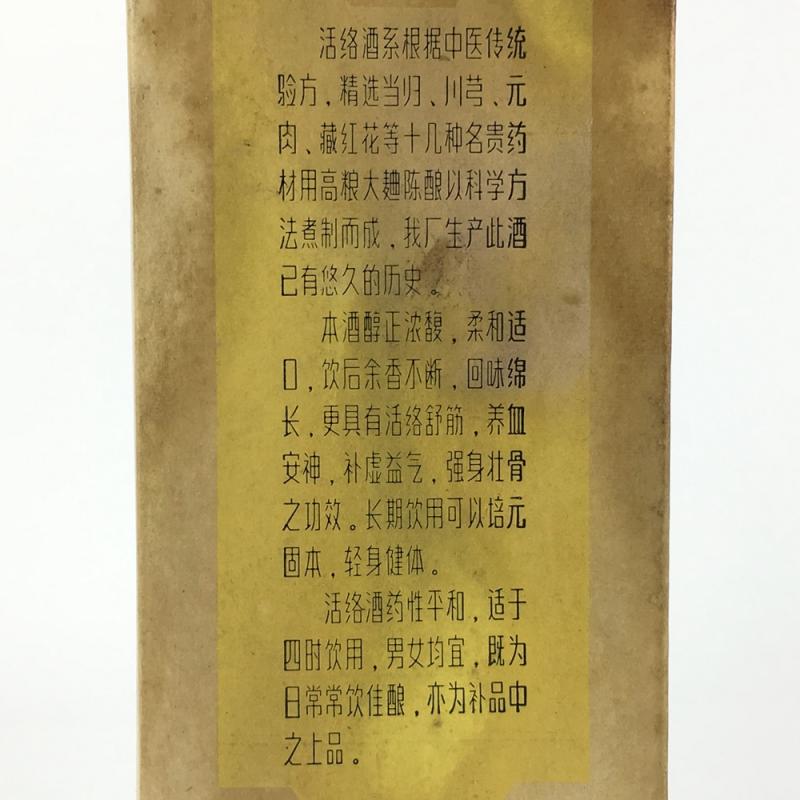 活络酒系根据中医传统
验方，精选当归、川芎、元
肉、藏红花等十几种名贵药
材用高粮大麯陈酿以科学方
法煮制而成，我厂生产此酒
已有悠久的历史。
本酒醇正浓馥，柔和适
口，饮后余香不断，回味绵
长，更具有活络舒筋，养血
安神，补虚益气，强身壮骨
之功效。长期饮用可以培元
固本，轻身健体。
活络酒药性平和，适于
四时饮用，男女均宜，既为
日常常饮佳酿，亦为补品中
之上品。